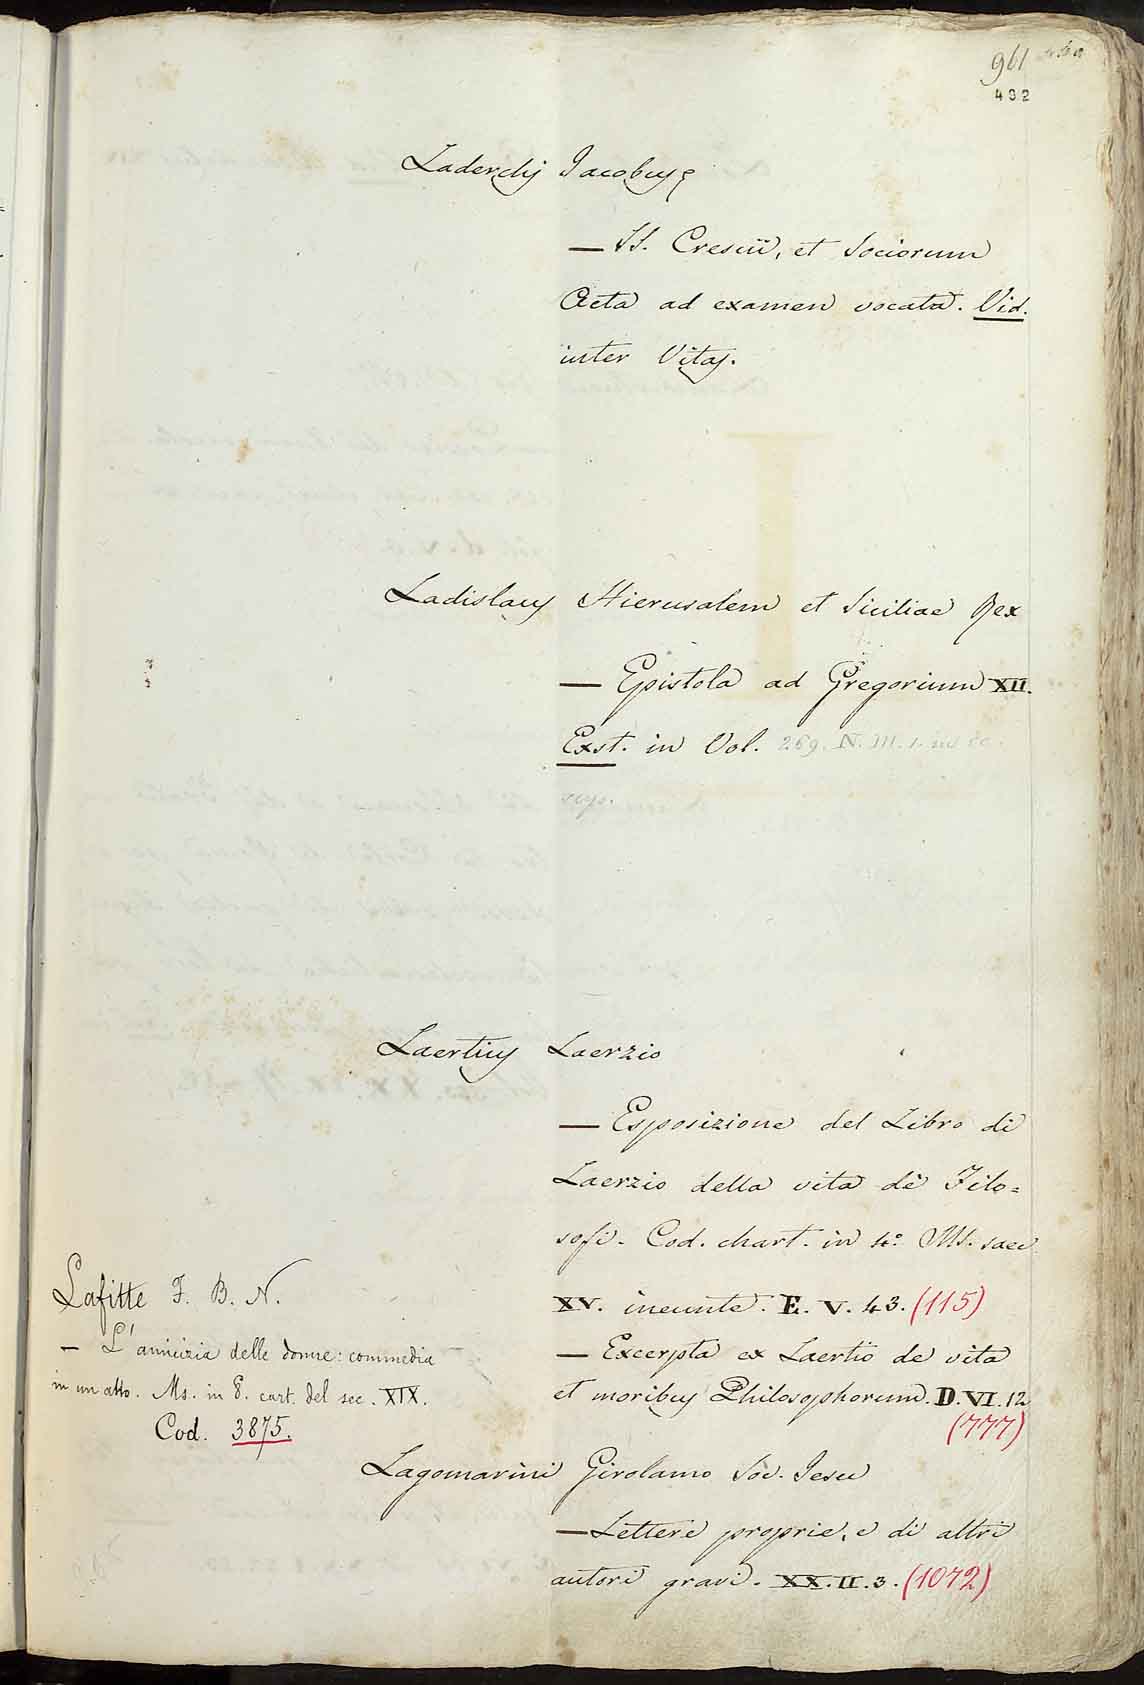 961
432
Laderchj Jacobus
— SS. Crescii, et Sociorum
Acta ad examen vocata. Vid.
inter Vitas.
Ladislaus Hierusalem et Siciliae Rex
— Epistola ad Gregorium XII.
Exst. in Vol. 269. N. III. 1. in
Laertius Laerzio
— Esposizione del Libro di
Laerzio della vita de' Filo=
sofi. Cod. chart. in 4.° Ms. saec
XV. ineunte. E. V. 43. (115)
— Excerpta ex Laertio de vita
et moribus Philosophorum. D. VI. 12
(777)
Lafitte F. B. N.
— L'amicizia delle donne: commedia
in un atto. Ms. in 8. cart. del sec. XIX.
Cod. 3875.
Lagomarini Girolamo Soc. Jesu
— Lettere proprie, e di altri
autori gravi. XX. II. 3. (1072)